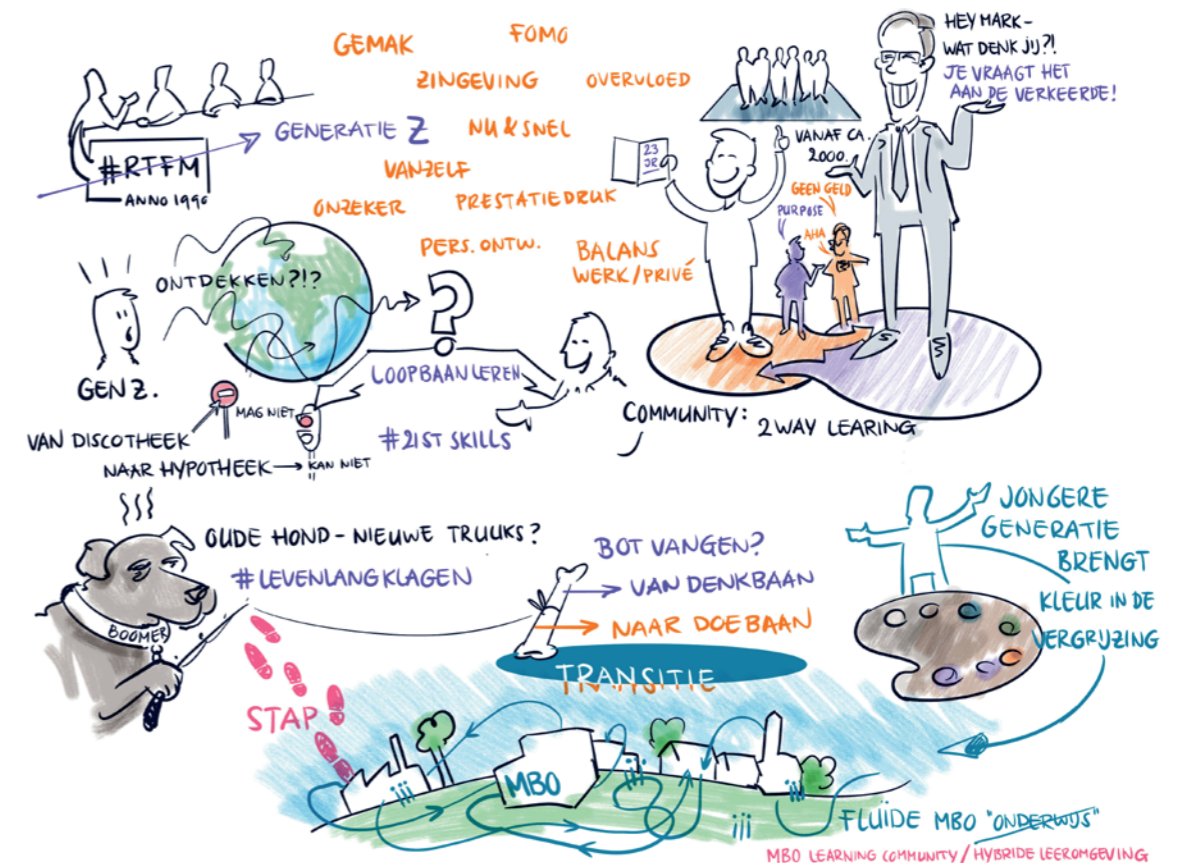 GEMAK
FOMO
ZINGEVING
OVERVLOED
GENERATIE Z
NU & SNEL
VANZELF
ONZEKER
PRESTATIEDRUK
PERS. ONTW.
BALANS
WERK/PRIVÉ
#RTFM
ANNO 1996
HEY MARK-
WAT DENK JIJ?!
JE VRAAGT HET
AAN DE VERKEERDE!
VANAF CA.
2000.
23
JR
GEEN GELD
PURPOSE
AHA
ONTDEKKEN?!?
GEN Z.
?
LOOPBAAN LEREN
MAG NIET
VAN DISCOTHEEK
NAAR HYPOTHEEK
KAN NIET
#21ST SKILLS
COMMUNITY:
2WAY LEARING
OUDE HOND - NIEUWE TRUUKS?
#LEVENLANGKLAGEN
BOOMER
STAP
BOT VANGEN?
VAN DENKBAAN
NAAR DOEBAAN
TRANSITIE
JONGERE
GENERATIE
BRENGT
KLEUR IN DE
VERGRIJZING
MBO
FLUÏDE MBO "ONDERWIJS"
MBO LEARNING COMMUNITY / HYBRIDE LEEROMGEVING